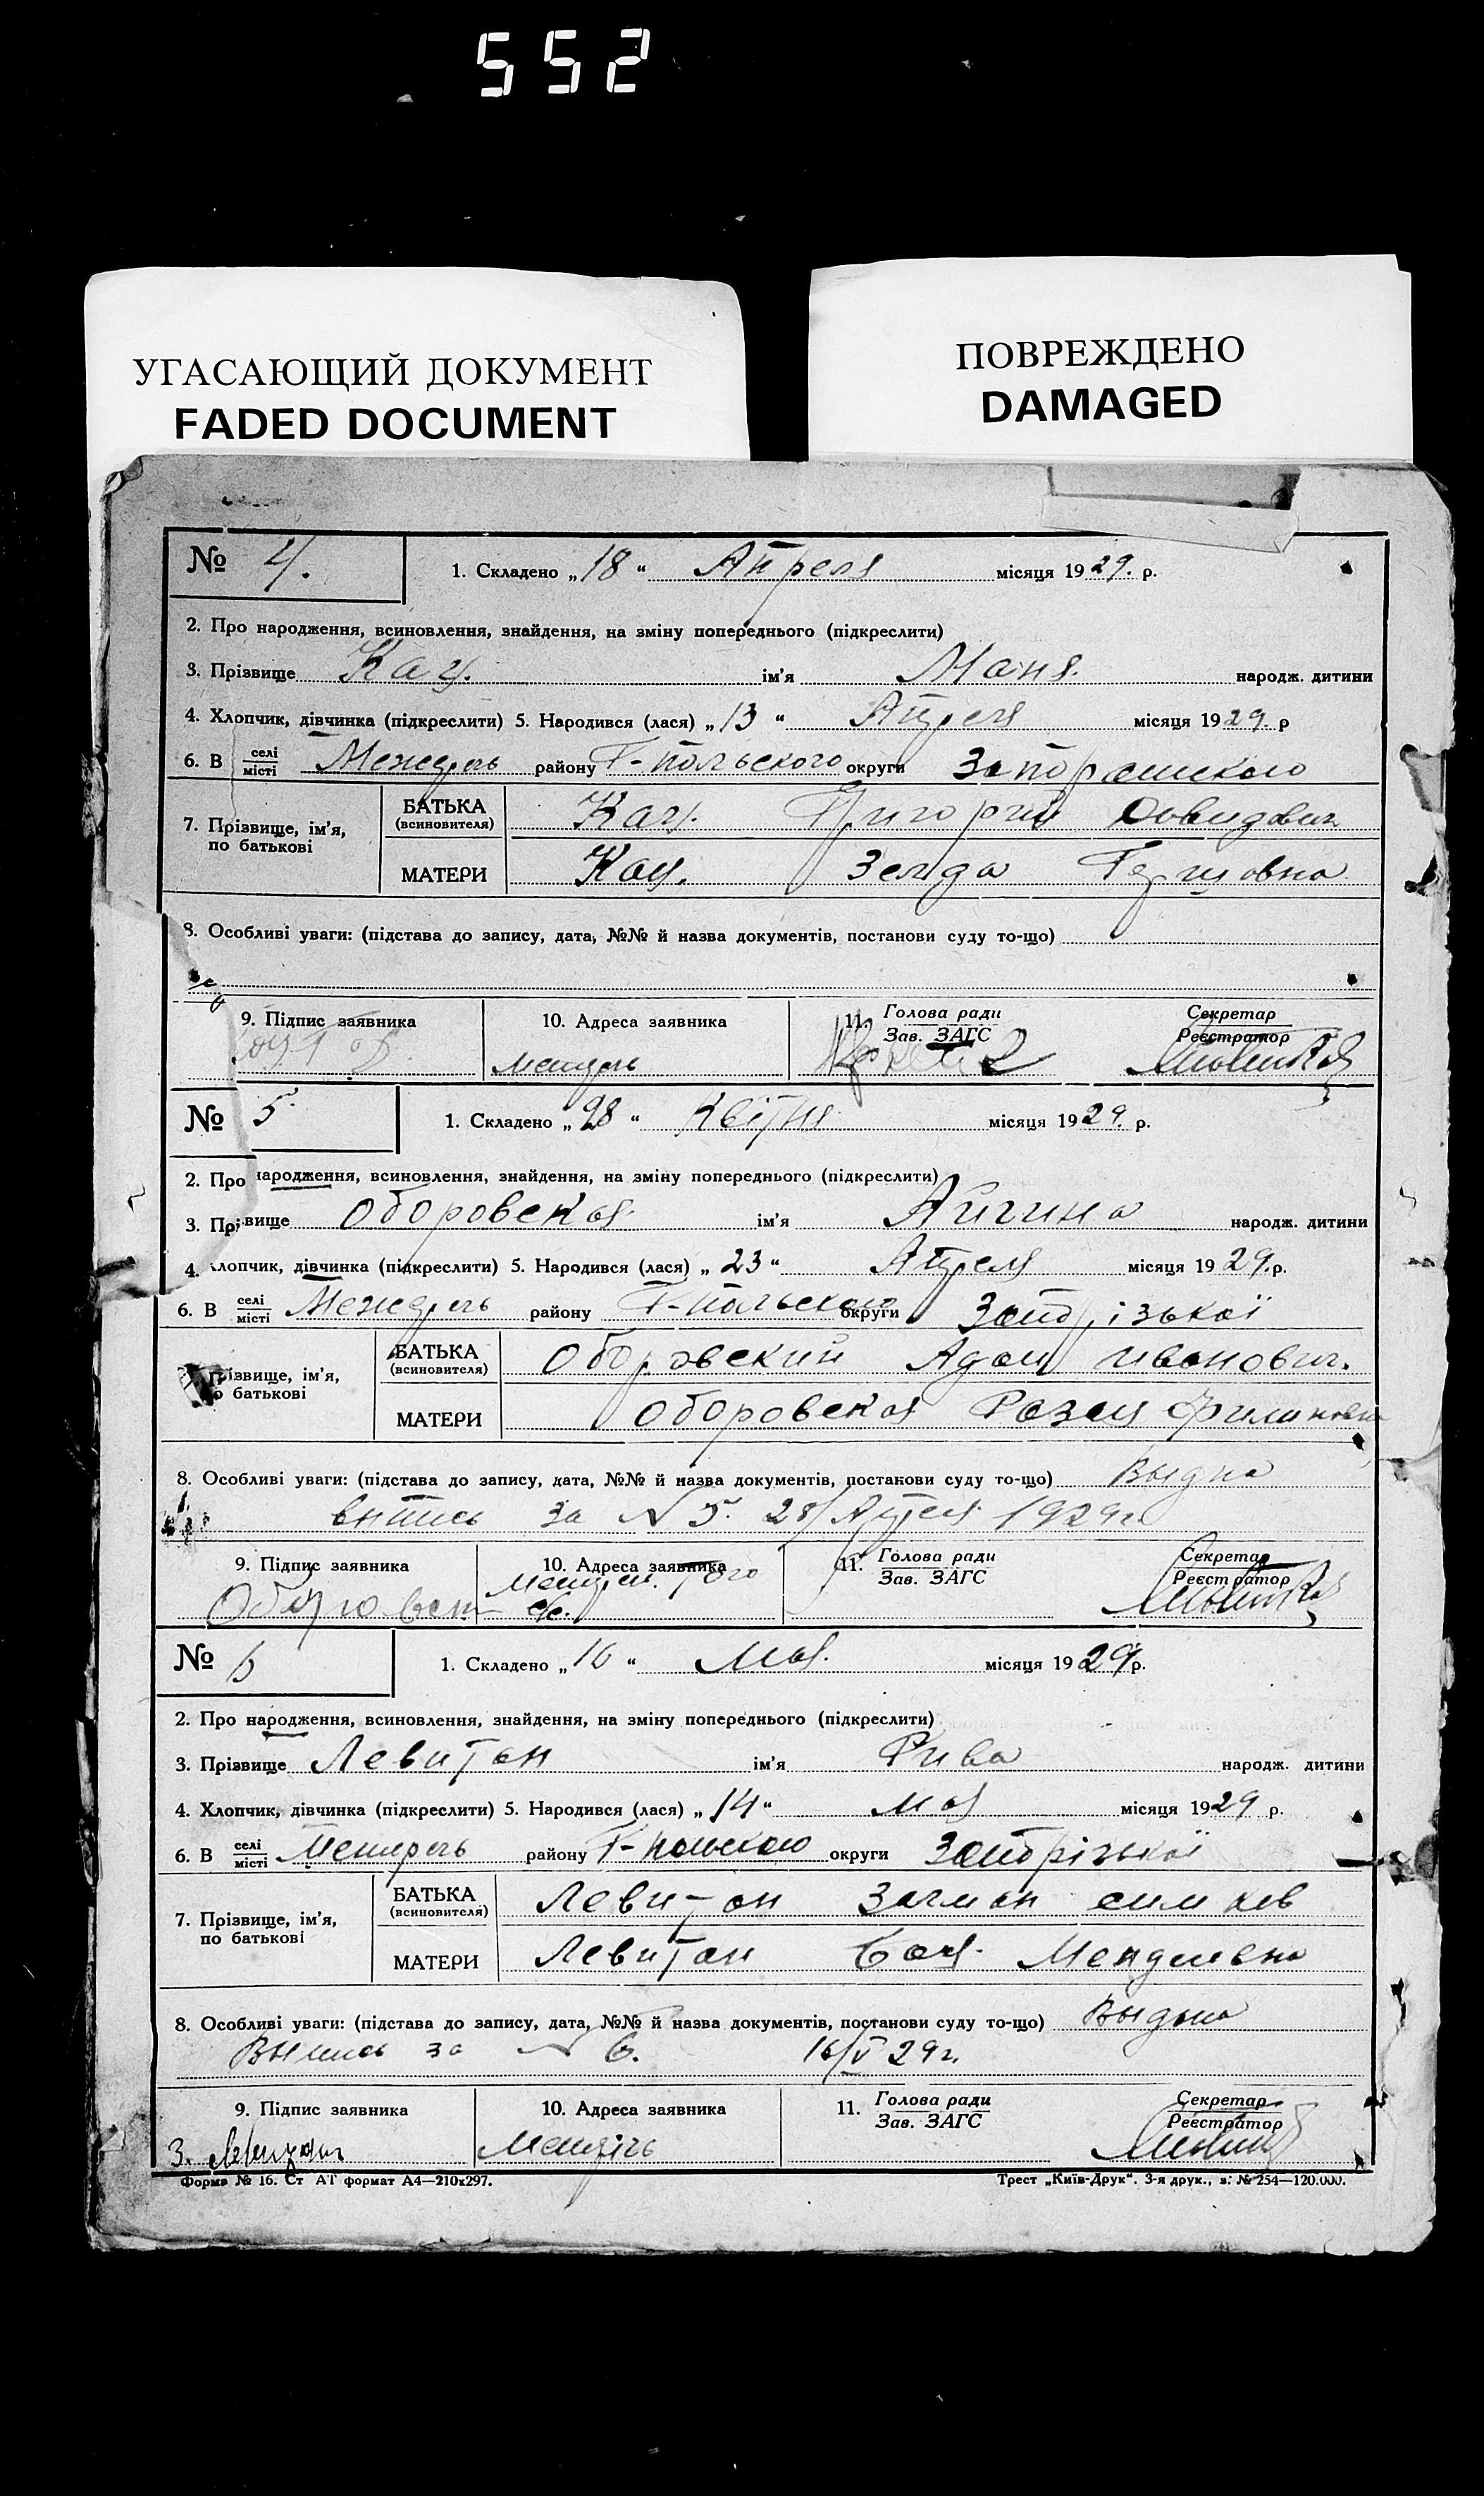 552
УГАСАЮЩИЙ ДОКУМЕНТ
FADED DOCUMENT
ПОВРЕЖДЕНО
DAMAGED
№ 4. 1. Складено „18“ Апреля місяця 1929. р.
2. Про народження, всиновлення, знайдення, на зміну попереднього (підкреслити)
3. Прізвище Кац. ім'я Маня. народж. дитини
4. Хлопчик, дівчинка (підкреслити) 5. Народився (лася) „13“ Апреля місяця 1929. р
6. В селі місті Межеречь району Г-польского округи Запорожского
7. Прізвище, ім'я, по батькові
БАТЬКА (всиновителя) Кац. Григорий Давидович
МАТЕРИ Кац. Зелда Герцовна
8. Особливі уваги: (підстава до запису, дата, №№ й назва документів, постанови суду то-що)
9. Підпис заявника 10. Адреса заявника 11. Голова ради Зав. ЗАГС Секретар Реєстратор
№ 5 1. Складено „28“ Квітня місяця 1929. р.
2. Про народження, всиновлення, знайдення, на зміну попереднього (підкреслити)
3. Прі вище Оборовская ім'я народж. дитини
4. хлопчик, дівчинка (підкреслити) 5. Народився (лася) „23“ Апреля місяця 1929.р.
6. В селі місті Межеречь району Г-польского округи Запорізької
Прізвище, ім'я, по батькові
БАТЬКА (всиновителя) Оборовский Адам Иванович.
МАТЕРИ Оборовская Филиповна
8. Особливі уваги: (підстава до запису, дата, №№ й назва документів, постанови суду то-що) Выдна
выпись за № 5. 28/Апреля 1929г
9. Підпис заявника 10. Адреса заявника 11. Голова ради Зав. ЗАГС Секретар Реєстратор
с/с.
№ 6 1. Складено „16“ Мая. місяця 1929р.
2. Про народження, всиновлення, знайдення, на зміну попереднього (підкреслити)
3. Прізвище Левитан ім'я Рива народж. дитини
4. Хлопчик, дівчинка (підкреслити) 5. Народився (лася) „14“ Мая місяця 1929 р.
6. В селі місті Межеречь району Г-польского округи Запорізької
7. Прізвище, ім'я, по батькові
БАТЬКА (всиновителя) Левитан Залман
МАТЕРИ Левитан Бася. Менделевна
8. Особливі уваги: (підстава до запису, дата, №№ й назва документів, постанови суду то-що) Выдана
Выпись за № 6. 16/V 29г.
9. Підпис заявника 10. Адреса заявника 11. Голова ради Зав. ЗАГС Секретар Реєстратор
З. Левитан Межирічь
Форма № 16. Ст АТ формат А4—210х297. Трест „Київ-Друк“. 3-я друк., з. № 254—120.000.